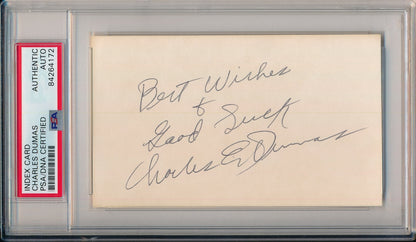 INDEX CARD
CHARLES DUMAS
PSA/DNA CERTIFIED
AUTHENTIC
AUTO
84264172
PSA
Best Wishes
+
Good Luck
Charles E. Dumas